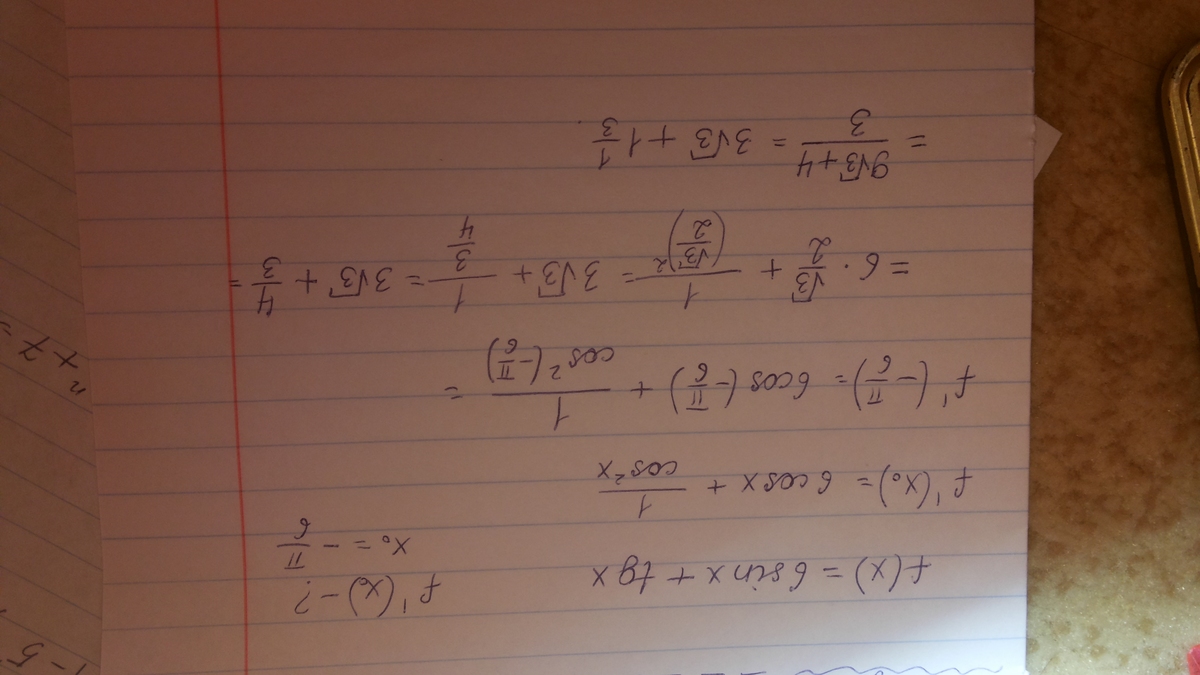 f(x) = 6sinx + tgx
f'(x₀) - ?
x₀ = - π/6
f'(x₀) = 6cosx + 1/cos²x
f'(-π/6) = 6cos(-π/6) + 1/cos²(-π/6) =
= 6 · √3/2 + 1/(√3/2)² = 3√3 + 1/(3/4) = 3√3 + 4/3 =
= (9√3+4)/3 = 3√3 + 1 1/3